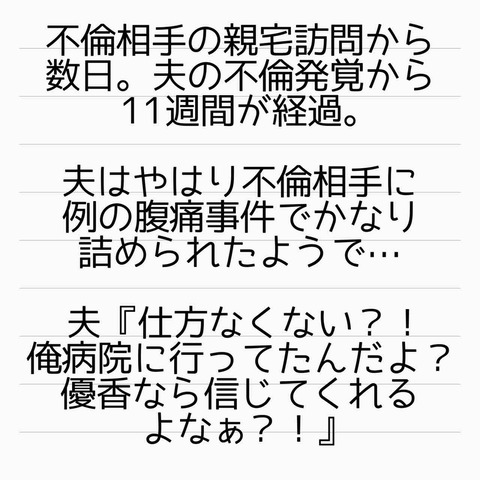 不倫相手の親宅訪問から
数日。夫の不倫発覚から
11週間が経過。
夫はやはり不倫相手に
例の腹痛事件でかなり
詰められたようで…
夫『仕方なくない？！
俺病院に行ってたんだよ？
優香なら信じてくれる
よなぁ？！』